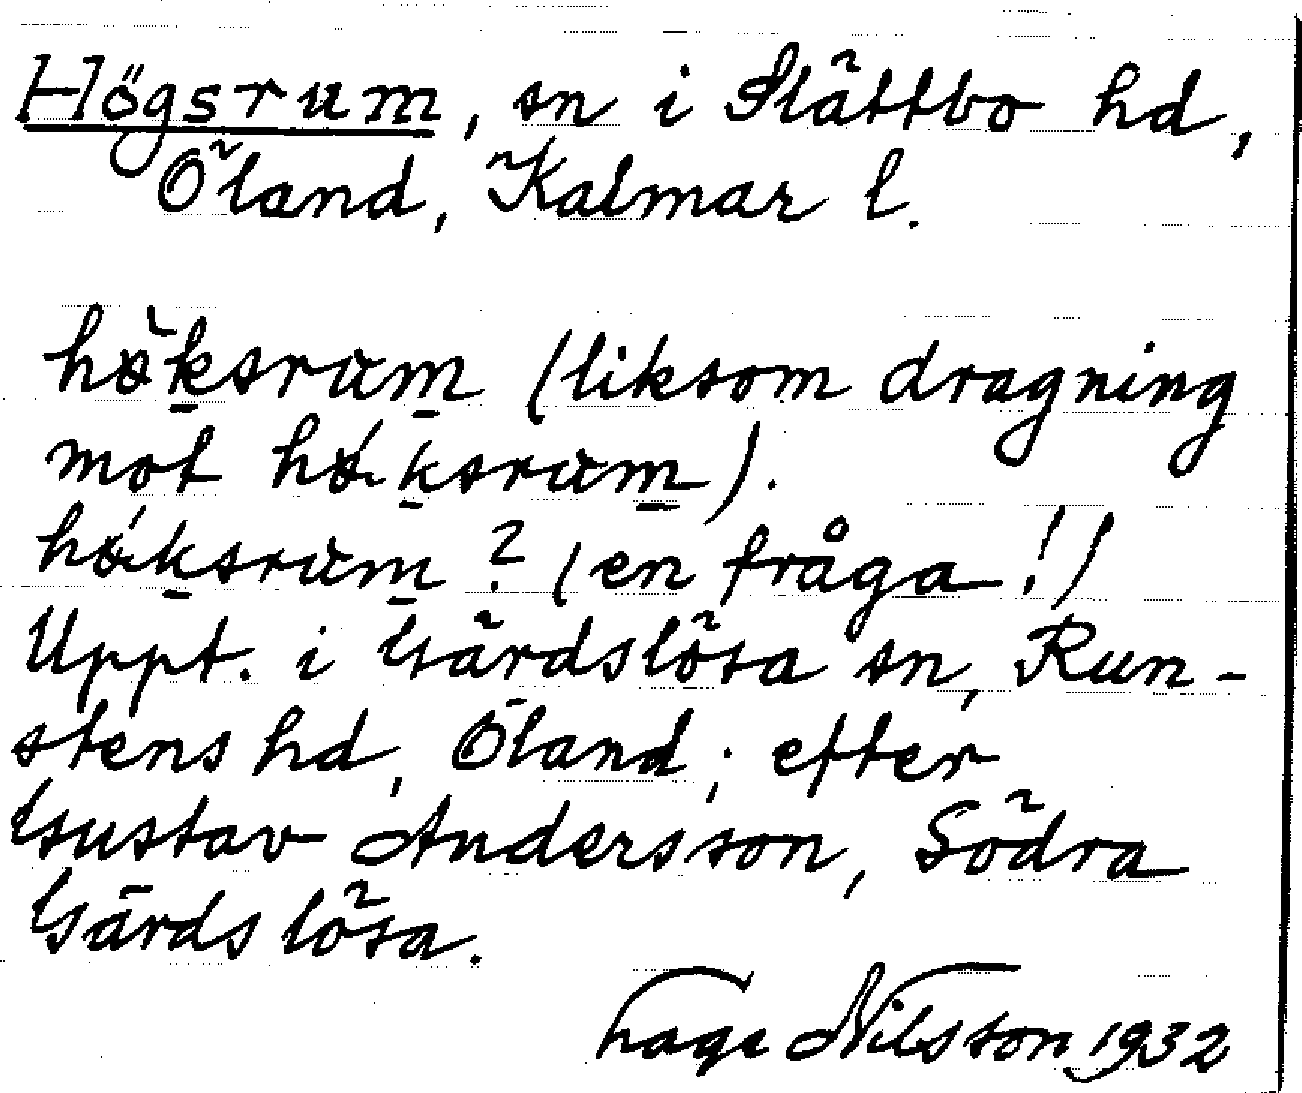 Högsrum, sn i Slättbo hd,
Öland, Kalmar l.
höksrum (liksom dragning
mot höksrum).
höksrum? (en fråga!)
Uppt. i Gärdslösa sn, Run-
stens hd, Öland; efter
Gustav Andersson, Södra
Gärdslösa.
Hage Nilsson 1932